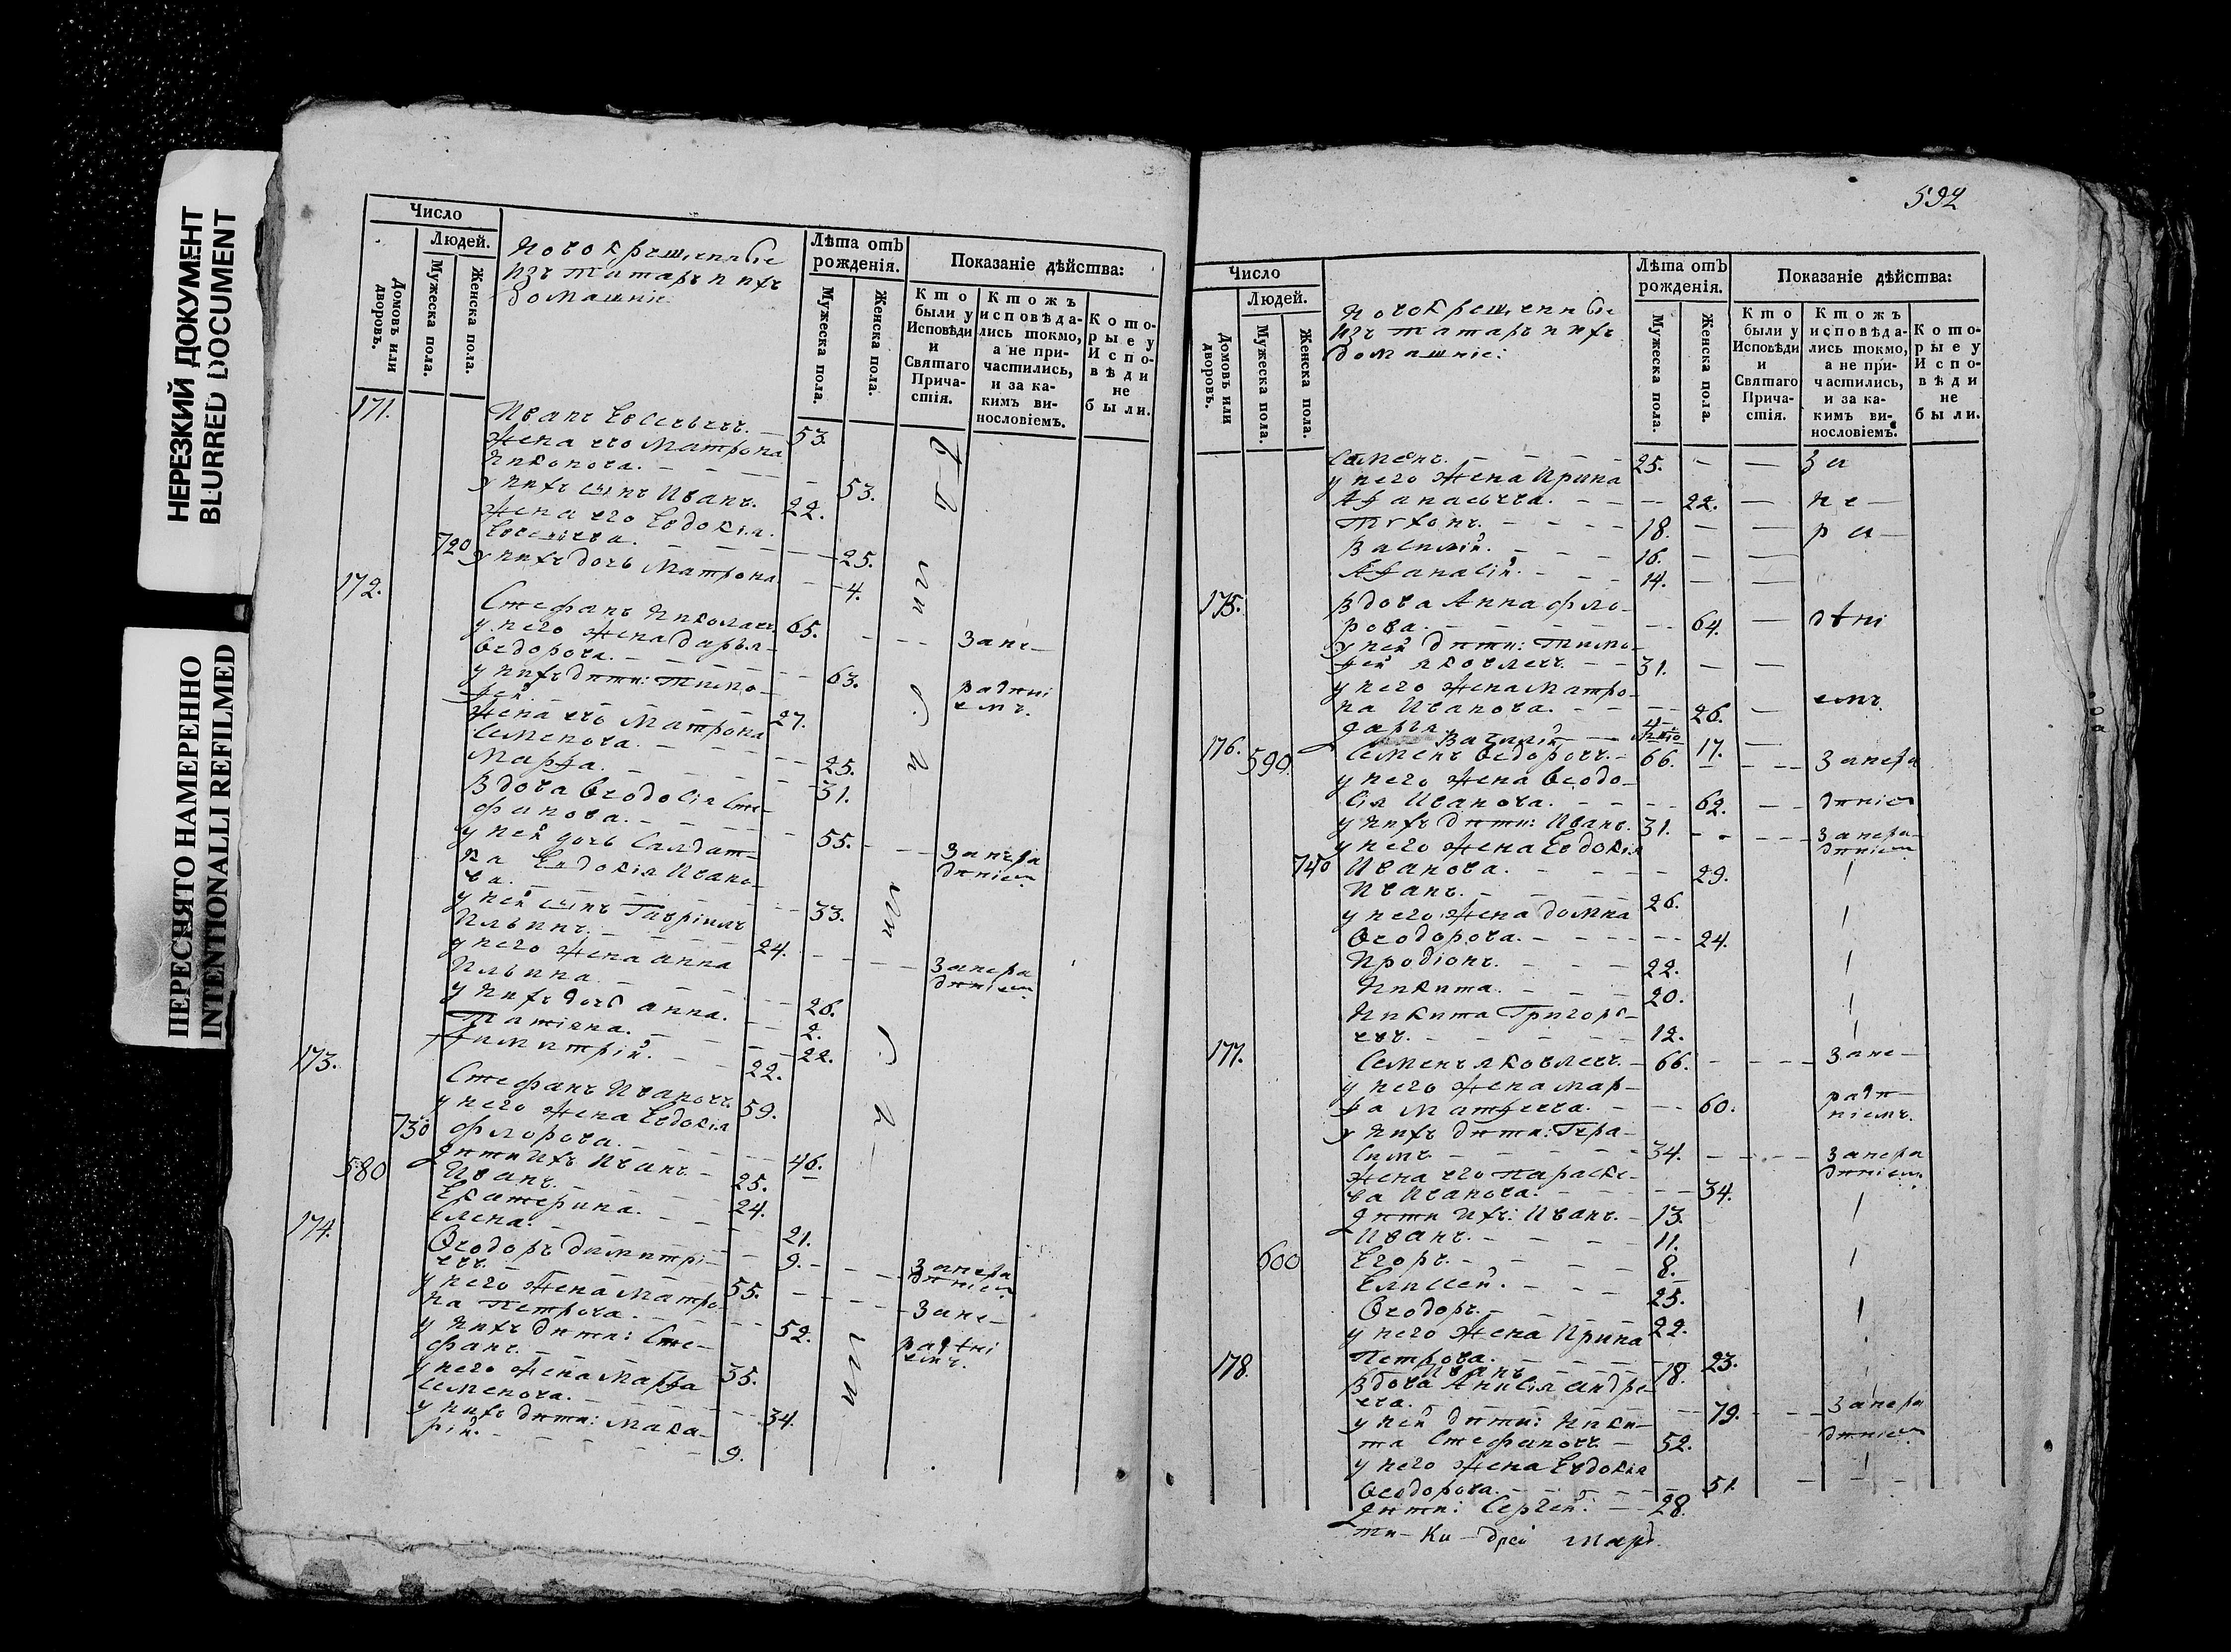 НЕРЕЗКИЙ ДОКУМЕНТ
BLURRED DOCUMENT
ПЕРЕСНЯТО НАМЕРЕННО
INTENTIONALLI REFILMED
Число
Людей.
Домовъ или дворовъ.
Мужеска пола.
Женска пола.
Новокрещенныіе
изъ татаръ и ихъ
домашніе:
Лѣта отъ рожденія.
Мужеска пола.
Женска пола.
Показаніе дѣйства:
Кто были у Исповѣди и Святаго Прича-стія.
Ктожъ исповѣда-лись токмо, а не при-частились, и за ка-кимъ ви-нословіемъ.
Кото-рые у Испо-вѣди не были.
171.
Иванъ Евсевьевъ. 53.
Жена его Матрона
Никонова. 53.
у нихъ сынъ Иванъ. 22.
Жена его Евдокія
Евсеніева. 25.
720 у нихъ дочь Матрона 4.
172.
Стефанъ Николаевъ 65. Зане-
у него жена Дарья
Ѳедорова. 63. радѣні
у нихъ дѣти: Тимо- емъ.
фей. 27.
Жена его Матрона
Семенова. 25.
Марѳа. 31.
Вдова Ѳеодосія Сте-
фанова. 55. Занера
у ней дочь Салдат- дѣніем
ка Евдокія Ивано-
ва. 33.
у ней сынъ Гавріилъ
Ильинъ. 24. Занера
у него жена Анна дѣніем
Ильина. 26.
у нихъ дочь Анна. 2.
Татіяна. 22.
Димитрій. 22.
173.
Стефанъ Ивановъ 59.
у него жена Евдокія
730 Флорова. 46.
580 дѣти ихъ Иванъ 25.
Иванъ. 24.
Екатерина. 21.
Елена. 9. Занера
174. дѣніем
Ѳеодоръ Димитрі-
евъ. 55. Зане-
у него жена Матро-
на Петрова. 52. радѣні
у нихъ дѣти: Сте- емъ.
фанъ. 35.
у него жена Марѳа
Семенова. 34.
у нихъ дѣти: Мака-
рій. 9.
592
Число
Людей.
Домовъ или дворовъ.
Мужеска пола.
Женска пола.
Новокрещенныіе
изъ татаръ и ихъ
домашніе:
Лѣта отъ рожденія.
Мужеска пола.
Женска пола.
Показаніе дѣйства:
Кто были у Исповѣди и Святаго Прича-стія.
Ктожъ исповѣда-лись токмо, а не при-частились, и за ка-кимъ ви-нословіемъ.
Кото-рые у Испо-вѣди не были.
Семенъ. 25. за
у него жена Ирина
Афанасьева. 22. не
Тихонъ. 18. ра
Василій. 16.
Афанасій. 14.
175. Вдова Анна Фло-
рова. 64. дѣні
у ней дѣти: Тимо-
фей Яковлевъ 31.
у него жена Матро- емъ
на Иванова. 26.
Дарья. 17.
Василій
176. 590 Семенъ Ѳедоровъ. 66. Занера
у него жена Ѳеодо-
сія Иванова. 62. дѣніем
у нихъ дѣти: Иванъ. 31. Занера
у него жена Евдокія дѣніем
740 Иванова. 29.
Иванъ. 26.
у него жена Домна
Ѳеодорова. 24.
Иродіонъ. 22.
Никита. 20.
Никита Григорь-
евъ. 12.
177. Семенъ Яковлевъ. 66. Зане-
у него жена Мар-
ѳа Матфеева. 60. радѣ-
у нихъ дѣти: Гера- ніемъ.
симъ. 34. Занера
Жена его Параске- дѣніем
ва Иванова. 34.
дѣти ихъ: Иванъ. 13.
Иванъ. 11.
600 Егоръ. 8.
Елисей. 25.
Ѳеодоръ. 22.
у него жена Ирина
Петрова. 23.
Иванъ 18.
178. Вдова Анисія Андре-
ева. 79. Занера
у ней дѣти: Ники-
та Стефановъ 52. дѣніем
у него жена Евдокія
Ѳеодорова. 51.
дѣти: Сергей. 28.